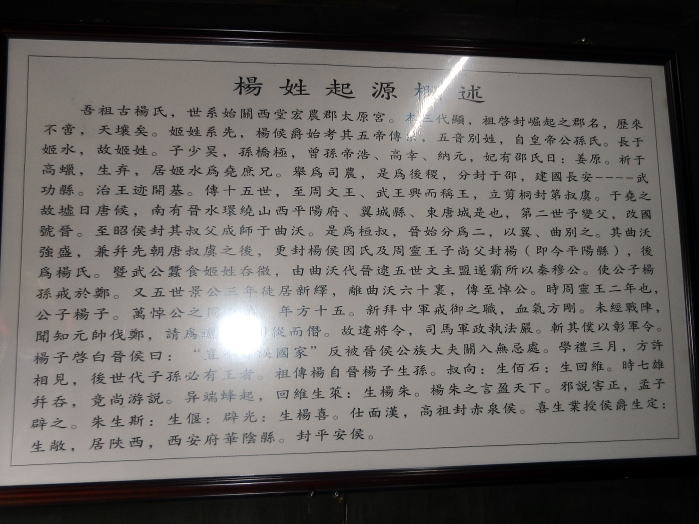 楊姓起源概述
吾祖古楊氏，世系始關西堂宏農郡太原宮。本三代顯，祖啓封崛起之郡名，歷來
不啻，天壤矣。姬姓系先，楊侯爵始考其五帝傳宗，五音別姓，自皇帝公孫氏。長于
姬水，故姬姓。子少昊，孫橋極，曾孫帝浩、高幸、納元，妃有邵氏曰：姜原。祈于
高蠟，生弃，居姬水爲堯庶兄。舉爲司農，是爲後稷，分封于邰，建國長安----武
功縣。治王迹開基。傳十五世，至周文王、武王興而稱王，立剪桐封第叔虞。于堯之
故墟日唐侯，南有晉水環繞山西平陽府、翼城縣、東唐城是也，第二世予變父，改國
號晉。至昭侯封其叔父成師于曲沃。是爲桓叔，晉始分爲二，以翼、曲別之。其曲沃
強盛，兼并先朝唐叔虞之後，更封楊侯因氏及周靈王子尚父封楊（即今平陽縣），後
爲楊氏。暨武公蠶食姬姓吞徵，由曲沃代晉逮五世文主盟遂霸所以秦穆公。使公子楊
孫戒於鄭。又五世景公三年徒居新繹，離曲沃六十裏，傳至悼公。時周靈王二年也，
公子楊子。萬悼公之 年方十五。新拜中軍戒御之職，血氣方剛。未經戰陣，
聞知元帥伐鄭，請爲 從而僭。故違將令，司馬軍政執法嚴。斬其僕以彰軍令。
楊子啓白晉侯曰：“ 國家”反被晉侯公族大夫關入無忌處。學禮三月，方許
相見，後世代子孫必有王者。祖傳楊自晉楊子生孫。叔向：生佰石：生回維。時七雄
并吞，竟尚游說。异端蜂起，回維生萊：生楊朱。楊朱之言盈天下。邪說害正，孟子
辟之。朱生斯：生偃：辟光：生楊喜。仕面漢，高祖封赤泉侯。喜生業授侯爵生定：
生敞，居陝西，西安府華陰縣。封平安侯。